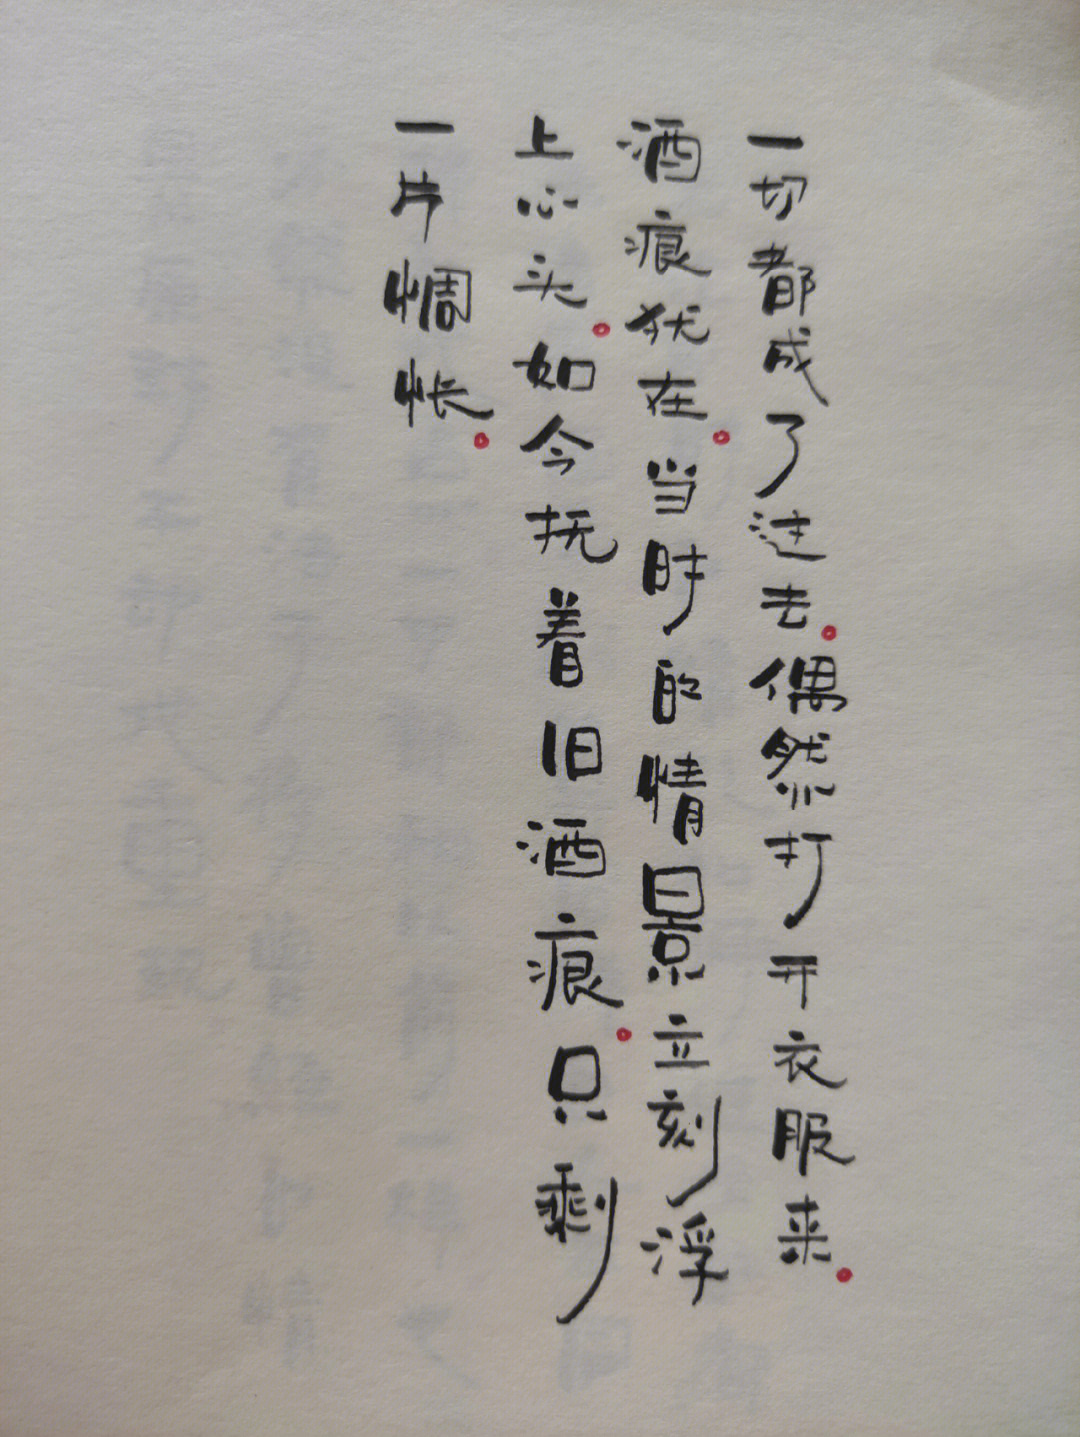 一切都成了过去。偶然打开衣服来。
酒痕犹在。当时的情景立刻浮
上心头。如今抚着旧酒痕。只剩
一片惆怅。